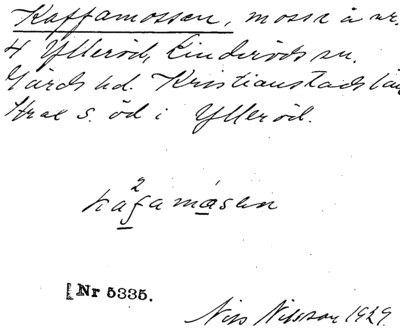 Kaffamossen, mosse å nr.
4 Ylleröd, Linderöds sn.
Gärds hd. Kristianstads län
s. öd i Ylleröd.
2
kafamåsen
Nr 5335.
Nils Nilsson 1929.